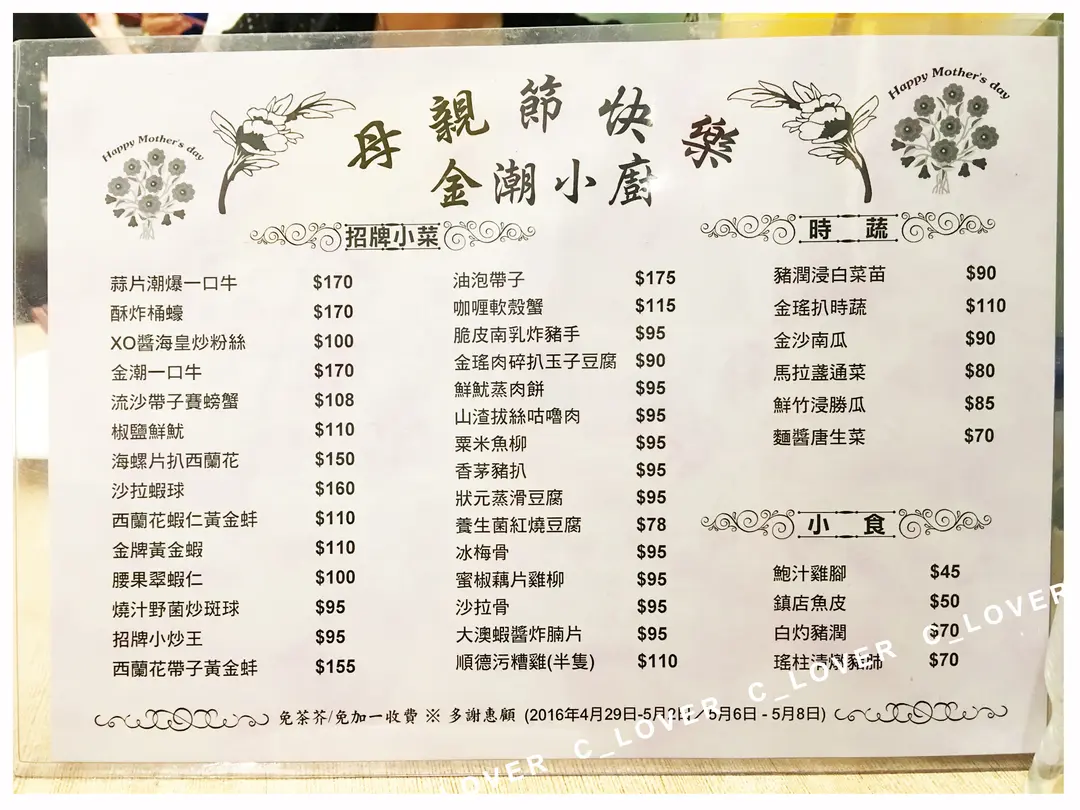 Happy Mother's day
母親節快樂
Happy Mother's day
金潮小廚
招牌小菜
蒜片潮爆一口牛 $170
酥炸桶蠔 $170
XO醬海皇炒粉絲 $100
金潮一口牛 $170
流沙帶子賽螃蟹 $108
椒鹽鮮魷 $110
海螺片扒西蘭花 $150
沙拉蝦球 $160
西蘭花蝦仁黃金蚌 $110
金牌黃金蝦 $110
腰果翠蝦仁 $100
燒汁野菌炒斑球 $95
招牌小炒王 $95
西蘭花帶子黃金蚌 $155
油泡帶子 $175
咖喱軟殼蟹 $115
脆皮南乳炸豬手 $95
金瑤肉碎扒玉子豆腐 $90
鮮魷蒸肉餅 $95
山渣拔絲咕嚕肉 $95
粟米魚柳 $95
香茅豬扒 $95
狀元蒸滑豆腐 $95
養生菌紅燒豆腐 $78
冰梅骨 $95
蜜椒藕片雞柳 $95
沙拉骨 $95
大澳蝦醬炸腩片 $95
順德污糟雞(半隻) $110
時 蔬
豬潤浸白菜苗 $90
金瑤扒時蔬 $110
金沙南瓜 $90
馬拉盞通菜 $80
鮮竹浸勝瓜 $85
麵醬唐生菜 $70
小 食
鮑汁雞腳 $45
鎮店魚皮 $50
白灼豬潤 $70
瑤柱清燉豬肺 $70
免茶芥/免加一收費 ※ 多謝惠顧 (2016年4月29日-5月2日／5月6日 - 5月8日)
LOVER C_LOVER C_LOVER C_LOVER